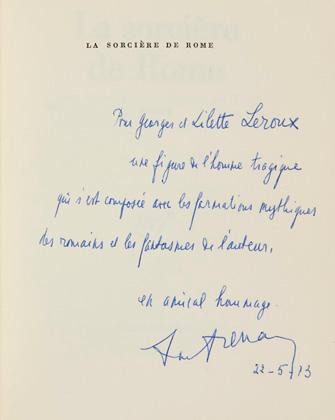 LA SORCIÈRE DE ROME
Pour Georges et Lilette Leroux
une figure de l'homme tragique
qui s'est composée avec les formations mythiques
des romains et les fantasmes de l'auteur,
en amical hommage.
22-5-73